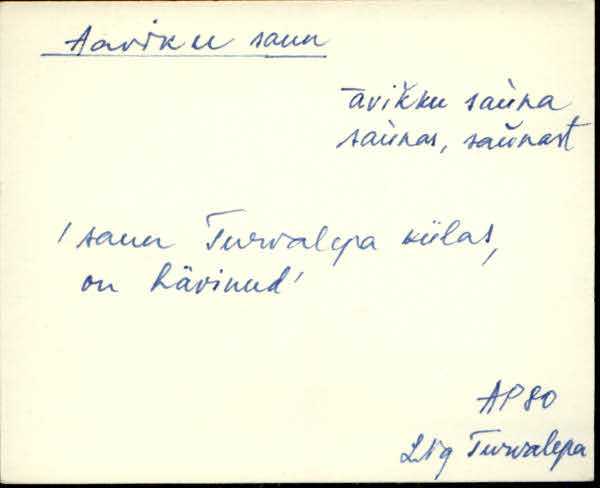 Aaviku saun
āvikku sàuna
sàunas, sàunast
'saun Turvalepa külas,
on hävinud'
AP 80
LNg Turvalepa